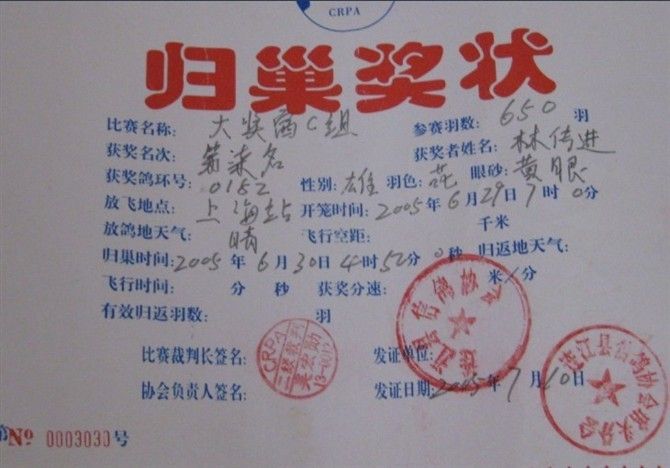 CRPA
归巢奖状
比赛名称: 大奖面C组 参赛羽数: 650 羽
获奖名次: 第柒名 获奖者姓名: 林传进
获奖鸽环号: 0152 性别: 雄 羽色: 花 眼砂: 黄眼
放飞地点: 上海站 开笼时间: 2005年6月29日7时0分
放鸽地天气: 晴 飞行空距: 千米
归巢时间: 2005年6月30日4时52分0秒 归返地天气:
飞行时间: 分 秒 获奖分速: 米/分
有效归返羽数: 羽
比赛裁判长签名: 发证单位:
协会负责人签名: 发证日期: 2005年7月10日
CRPA
二级裁判
连江县信鸽协会
№ 0003030 号